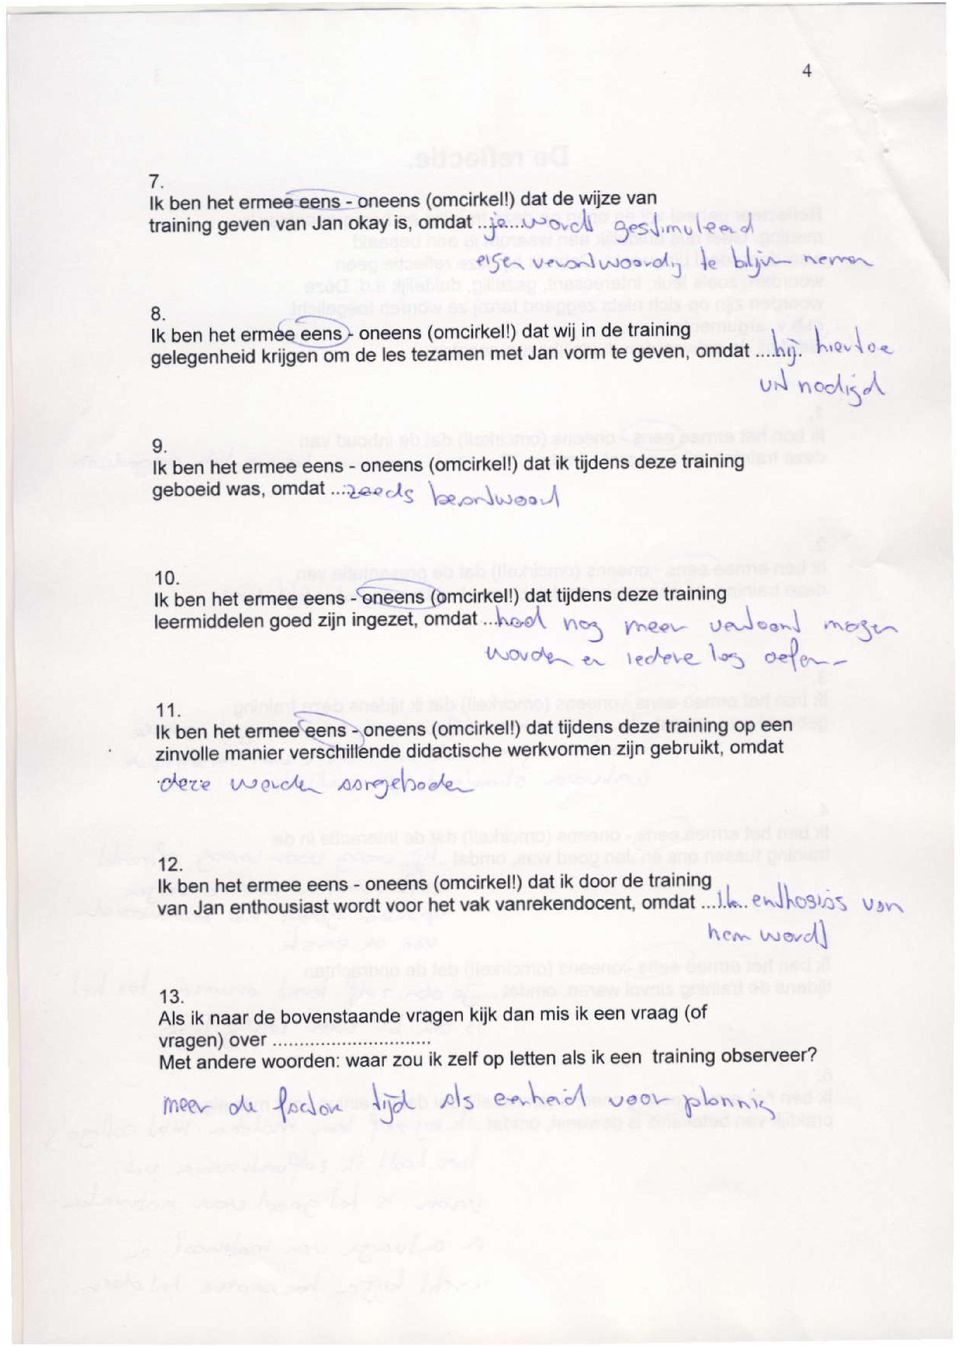 4
7.
Ik ben het ermee eens - oneens (omcirkel!) dat de wijze van
training geven van Jan okay is, omdat ..je...wordt gestimuleerd
eigen verantwoordig te blijven nemen
8.
Ik ben het ermee eens - oneens (omcirkel!) dat wij in de training
gelegenheid krijgen om de les tezamen met Jan vorm te geven, omdat ....hij. hiertoe
uitnodigd
9.
Ik ben het ermee eens - oneens (omcirkel!) dat ik tijdens deze training
geboeid was, omdat ...:zeeds beantwoord
10.
Ik ben het ermee eens - oneens (omcirkel!) dat tijdens deze training
leermiddelen goed zijn ingezet, omdat ...had nog meer verwoord mogen
worden en iedere les oefenen
11.
Ik ben het ermee eens - oneens (omcirkel!) dat tijdens deze training op een
zinvolle manier verschillende didactische werkvormen zijn gebruikt, omdat
deze werden aangeboden
12.
Ik ben het ermee eens - oneens (omcirkel!) dat ik door de training
van Jan enthousiast wordt voor het vak vanrekendocent, omdat ...Ik.. van
hem wordt
13.
Als ik naar de bovenstaande vragen kijk dan mis ik een vraag (of
vragen) over ..............................
Met andere woorden: waar zou ik zelf op letten als ik een training observeer?
meer de factor tijd als eenheid voor planning